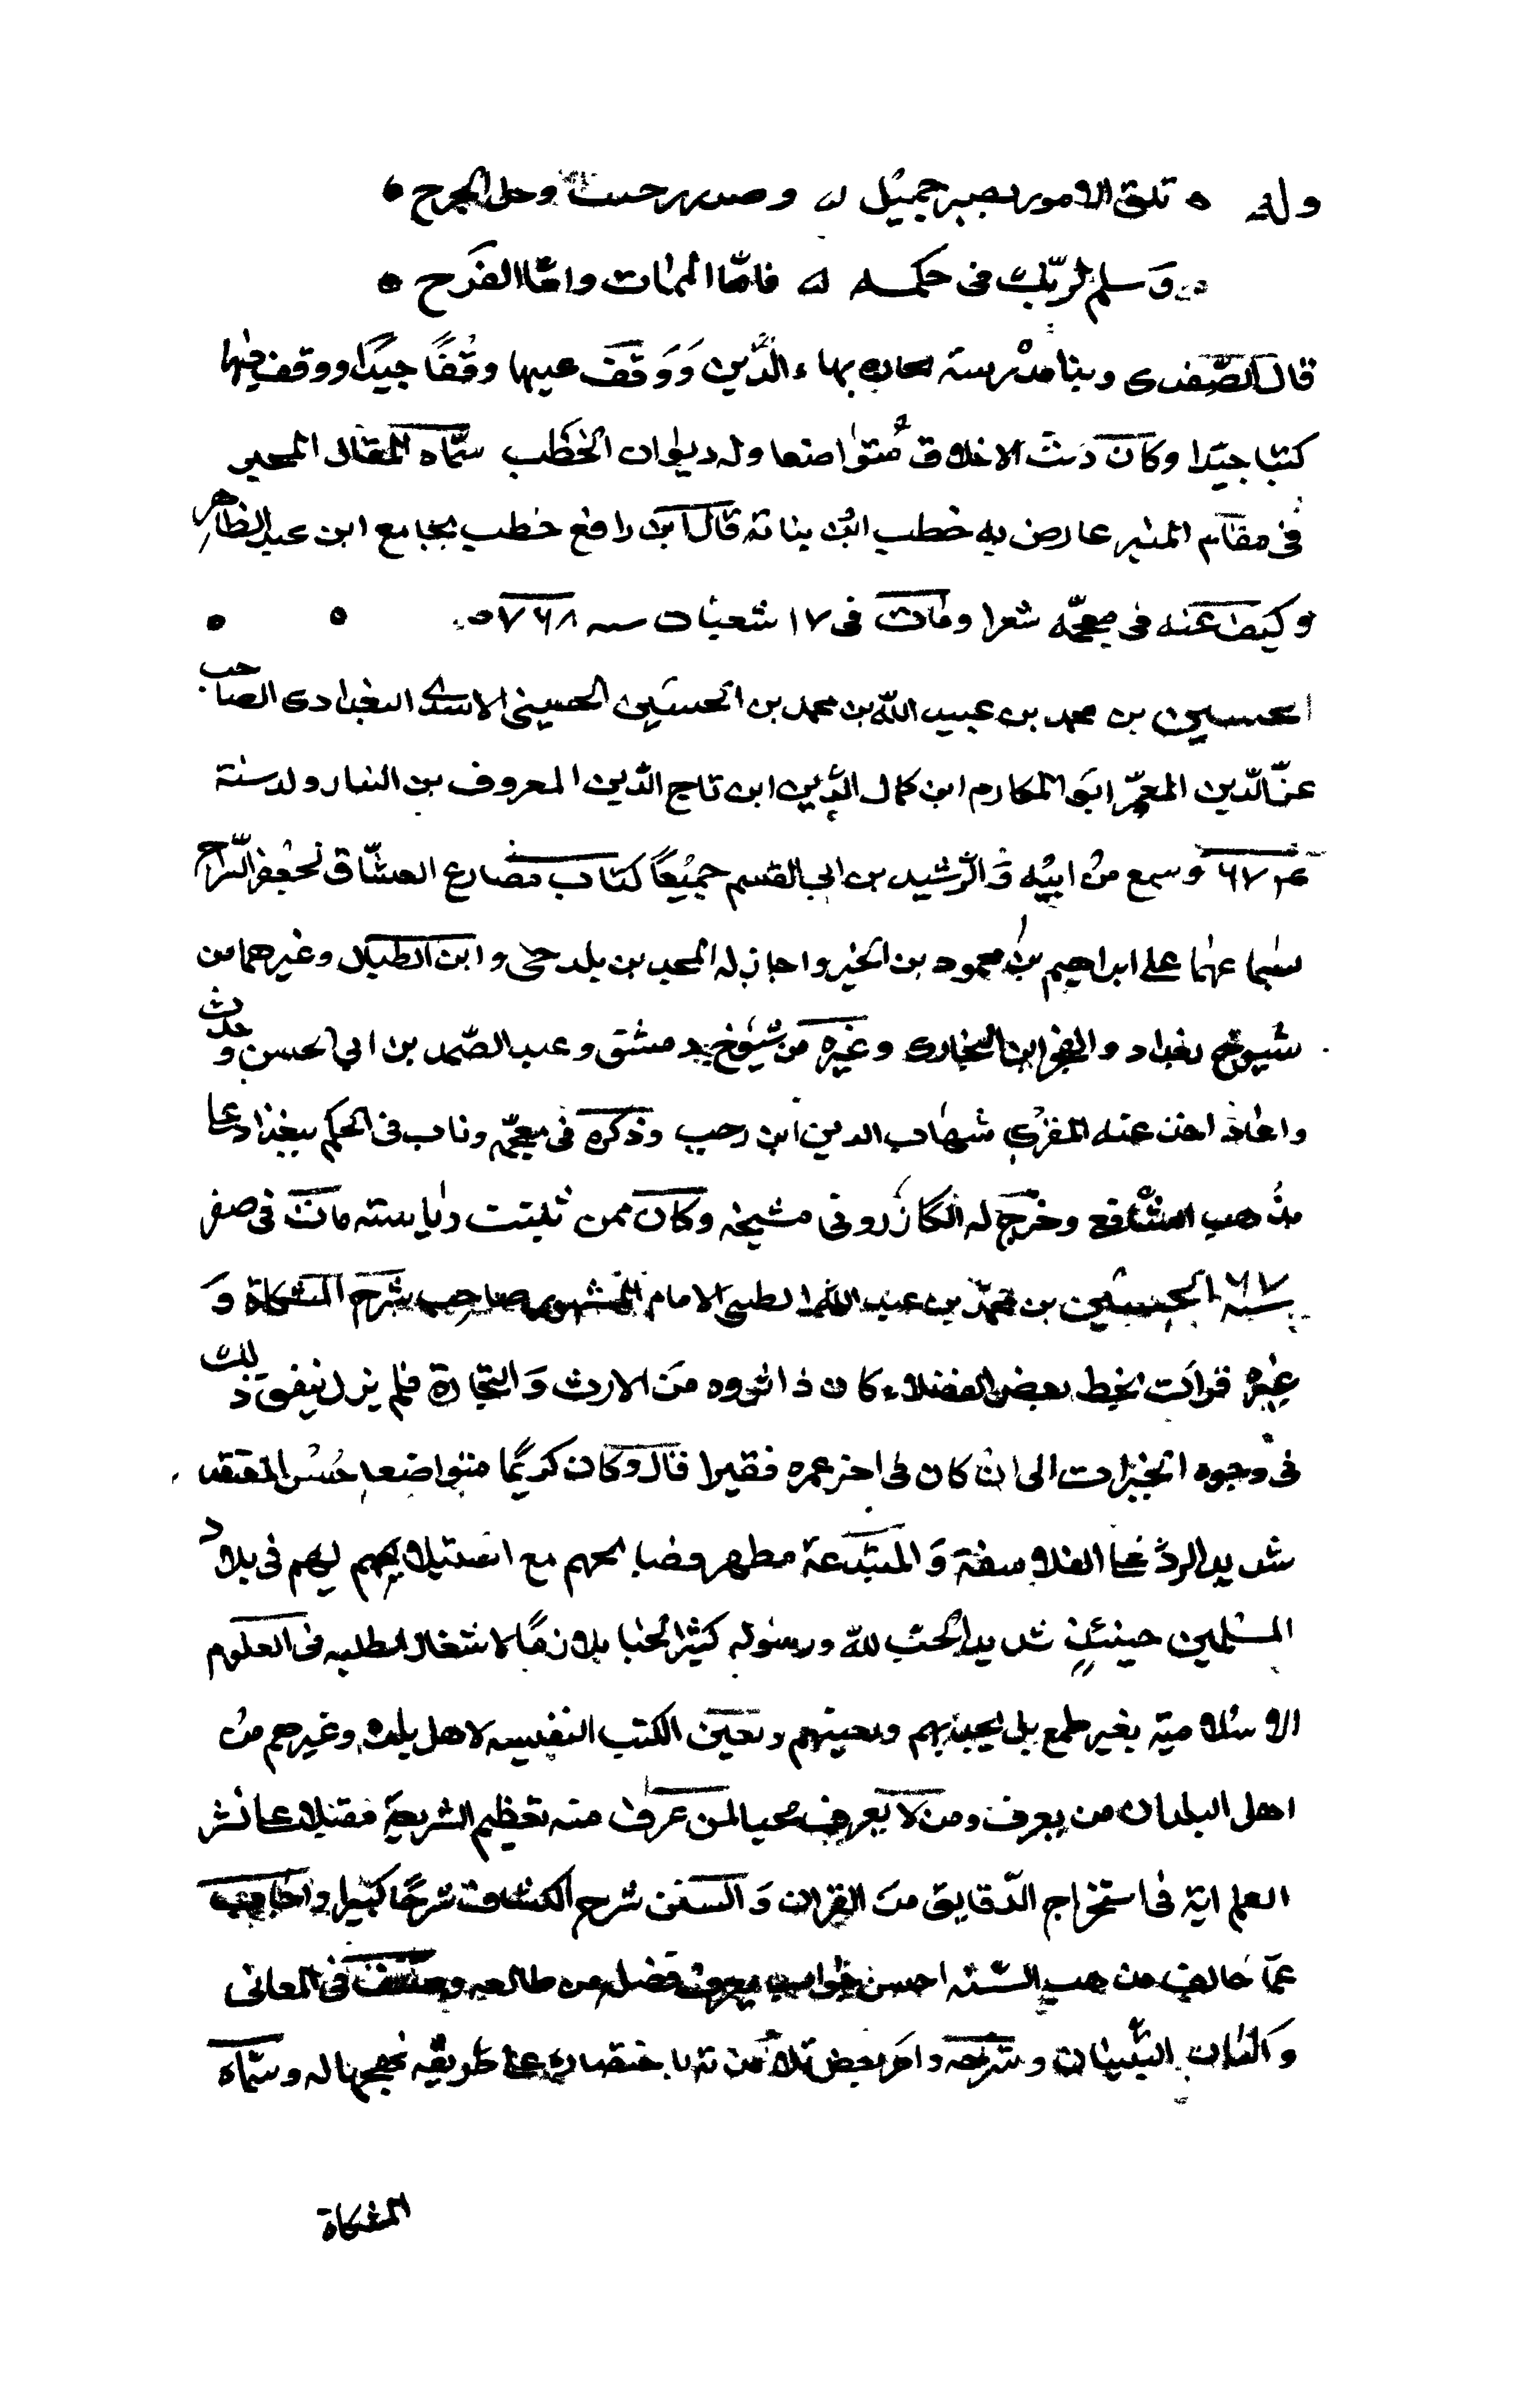 وله ه تلق الامور بصبر جميل ه وصدر رحيب وخل الحرج ه
وسلم لربك فى حكمه ه فاما الممات واما الفرج ه
قال الصفدى وبنا مدرسة بحاره بهاء الدين ووقف عليها وقفا جيدا ووقف فيها
كتبا جيدا وكان دمث الاخلاق متواضعا وله ديوان الخطب سماه المقال المحبر
فى مقام المنبر عارض به خطب ابن بناتة قال ابن رافع خطب بجامع ابن عبد الظاهر
وكتب عنه فى معجمه شعرا ومات فى ١٧ شعبان سنه ٧٦٨ ه
الحسين بن محمد بن عبيد الله بن محمد بن الحسين الحسينى الاسدى البغدادى الصاحب
عز الدين المعمر ابو المكارم ابن كمال الدين ابن تاج الدين المعروف بن النيار ولد سنة
٦٧٤ وسمع من ابيه و الرشيد بن ابى القسم جميعا كتاب مصارع العشاق لجعفر السراج
بسماعهما على ابراهيم بن محمود بن الخير واجاز له المجد بن بلدجى وابن الطبال وغيرهما من
شيوخ بغداد والفخر ابن البخارى وغيره من شيوخ دمشق وعبد الصمد بن ابى الحسن وحدث
واجاز اخذ عنه المقرى شهاب الدين ابن رجب وذكره فى معجمه وناب فى الحكم ببغداد على
مذهب الشافع وخرج له الكازرونى مشيخه وكان ممن ثبتت رياسته مات فى صفر
سنه الحسين بن محمد بن عبد الله الطيبى الامام المشهور صاحب شرح المشكاة و
غيره قرات بخط بعض الفضلاء كان ذا ثروه من الارث و التجارة فلم يزل ينفق ذلك
فى وجوه الخيرات الى ان كان فى اخر عمره فقيرا قال وكان كريما متواضعا حسن المعتقد
شديد الرد على الفلاسفة و المبتدعة مظهر فضايحهم مع استيلايهم ليهم فى بلاد
المسلمين حينئذ شديد الحب لله ورسوله كثير الحيا ملازما لاشتغال الطلبه فى العلوم
الاسلامية بغير طمع بل يجديهم ويعينهم ويعين الكتب النفيسه لاهل بلده وغيرهم من
اهل البلدان من يعرف ومن لا يعرف محبا لمن عرف منه تعظيم الشريعة مقبلا على نشر
العلم اية فى استخراج الدقايق من القران و السنن شرح الكشاف شرحا كبيرا واجاب
عما خالف مذهب السنه احسن جواب يعرف فضله من طالعه وصنف فى المعانى
والبيان التبيان وشرحه وامر بعض تلامذته باختصاره على طريقه نهجها له وسماه
المشكاة